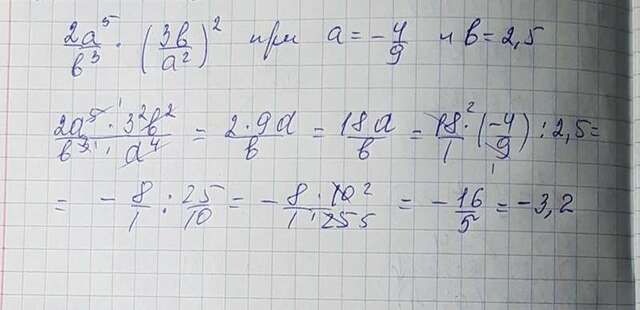 2a⁵/в³ · (3в/a²)² при a = -4/9 и в = 2,5
2a⁵ · 3²в² / в³ · a⁴ = 2·9a/в = 18a/в = 18/1 · (-4/9) : 2,5 =
= - 8/1 : 25/10 = - 8 · 10 2 / 1 · 25 5 = - 16/5 = -3,2